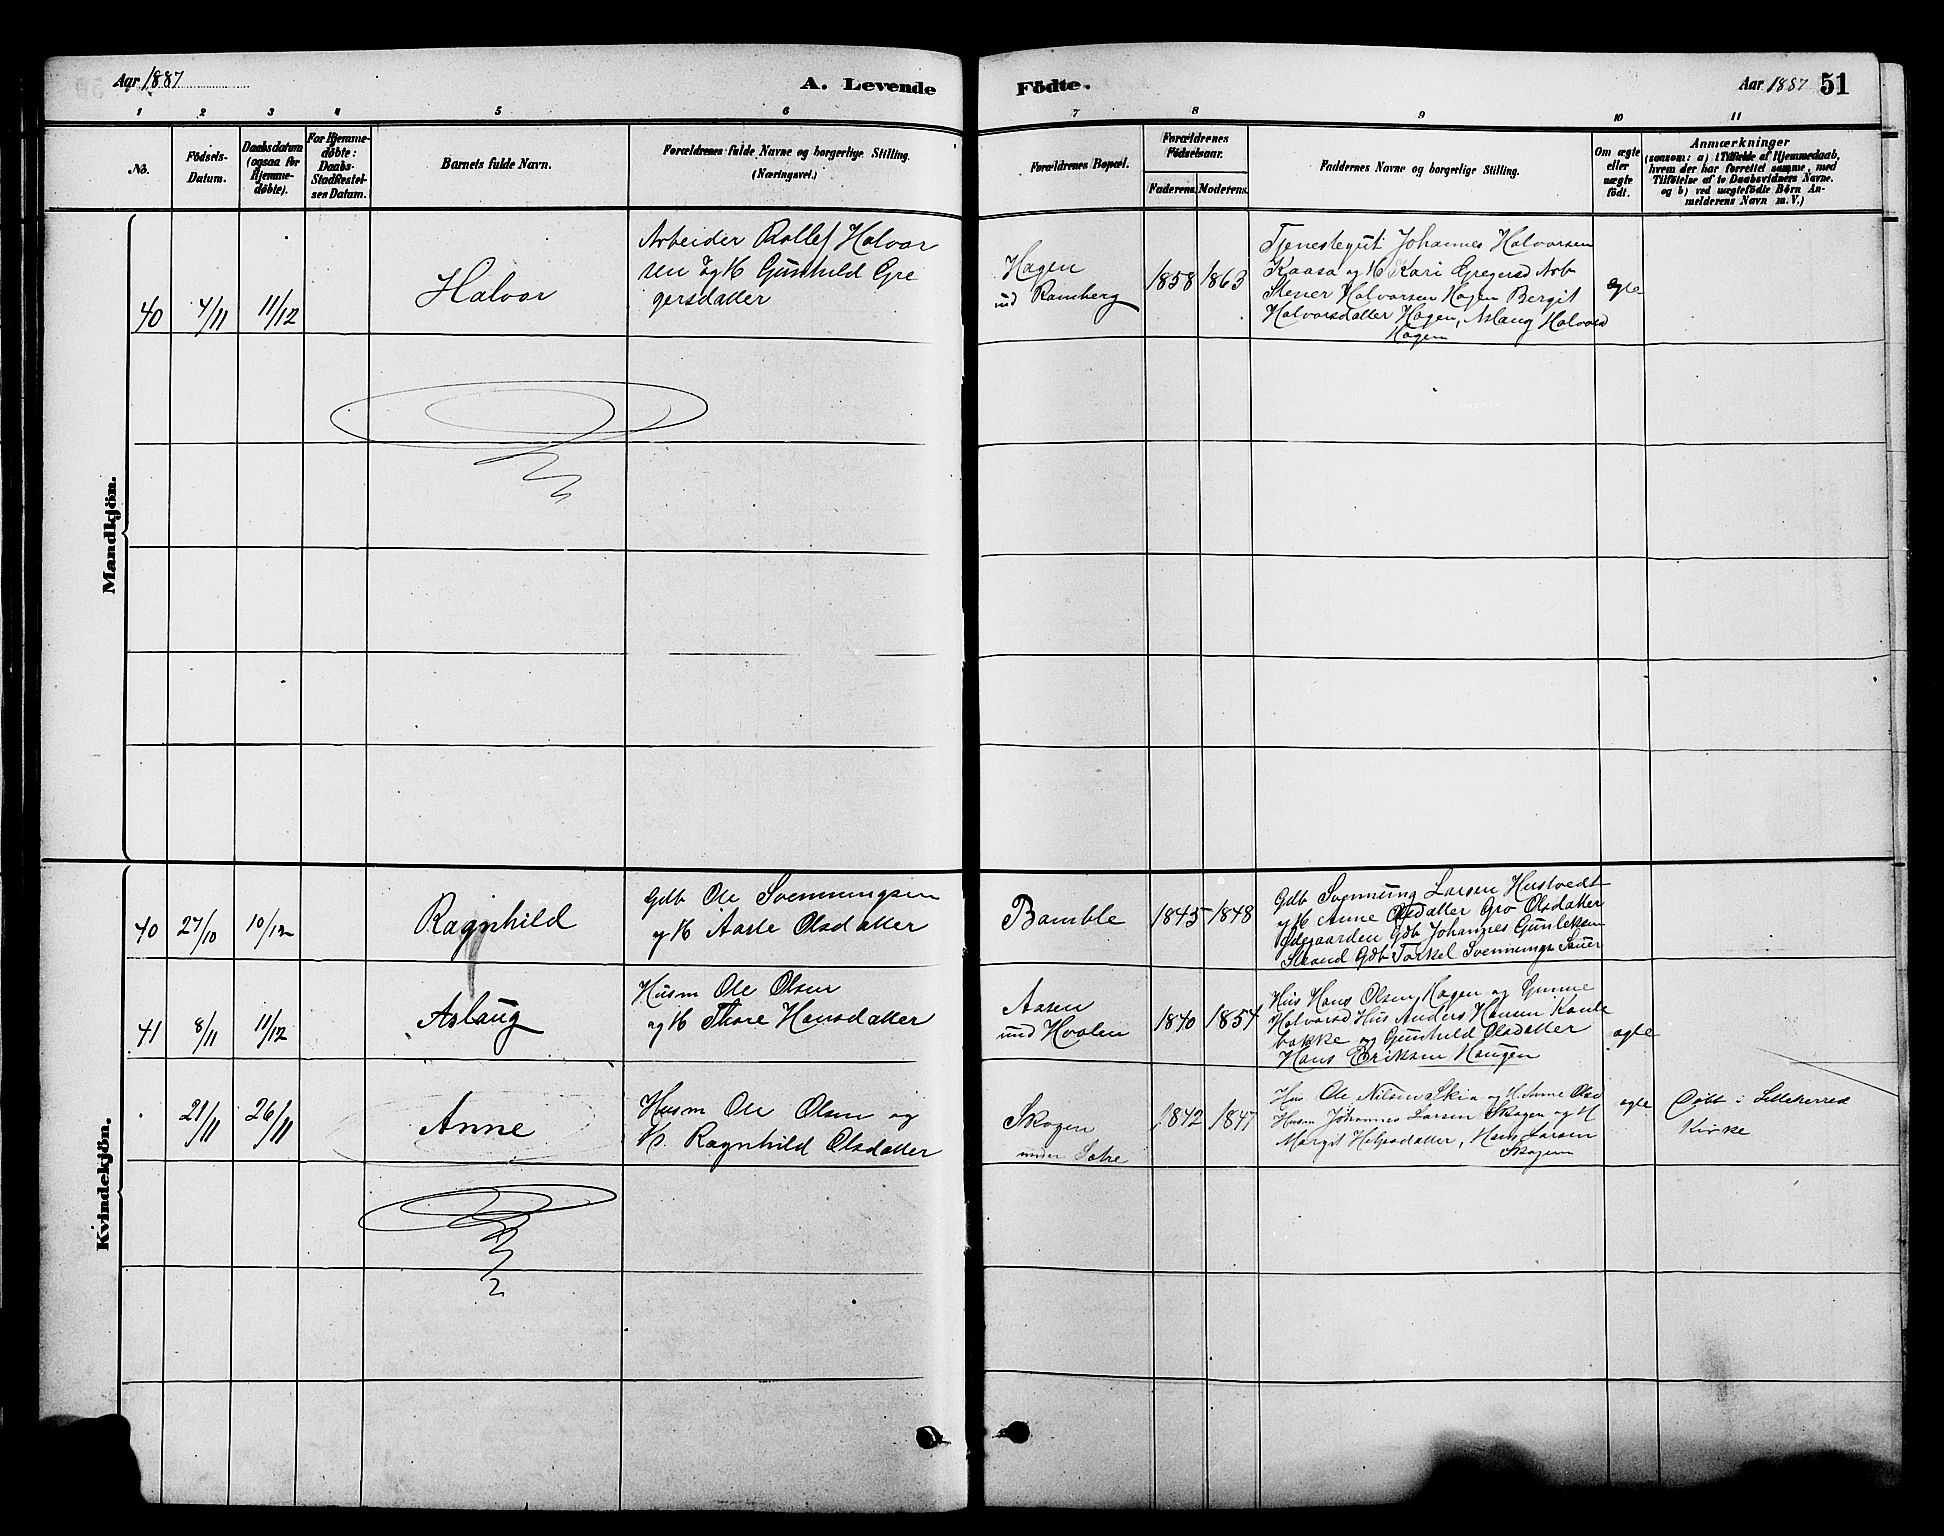 Aar 1887
A. Levende
Födte.
Aar 1887
51
1 2 3 4 5 6 7 8 9 10 11
No.
Födsels-
Datum.
Daabsdatum
(ogsaa for
Hjemme-
döbte).
For Hjemme-
döbte:
Daabs-
Stadfæstel-
ses Datum.
Barnets fulde Navn.
Forældrenes fulde Navne og borgerlige Stilling.
(Næringsvei.)
Forældrenes Bopæl.
Forældrenes
Födselsaar.
Faderens. Moderens.
Faddernes Navne og borgerlige Stilling.
Om ægte
eller
uægte
födt.
Anmærkninger
(saasom: a) i Tilfælde af Hjemmedaab,
hvem der har forrettet samme, med
Tilföielse af to Daabsvidners Navne.
og b) ved uægtefödte Börn An-
melderens Navn m. V.)
Mandkjön.
40
4/11
11/12
Halvor
Arbeider Rollef Halvor
sen og H Gunhild Gre
gersdatter
Hagen
und Ramberg
1858
1863
Tjenestegut Johannes Halvorsen
Kaasa og H Kari Gregersd Arb
Stener Halvorsen Hagen Bergit
Halvorsdatter Hagen, Aslaug Halvorsd
Hagen
ægte
Kvindekjön.
40
27/10
10/12
Ragnhild
Gdb Ole Svenningsen
og H Aaste Olsdatter
Bamble
1845
1848
Gdb Svennung Larsen Hustvedt
og H Anne Olsdatter Gro Olsdatter
Ødegaarden Gdb Johannes Gunleksen
Strand Gdb Torkel Svennungs
41
8/11
11/12
Aslaug
Husm Ole Olsen
og H Thore Hansdatter
Aasen
und Hvalen
1840
1854
Hus Hans Olsen, Hagen og Gunne
Halvorsd Hus Anders Hansen
bakke og Gunhild Olsdatter
Hans Eriksen Haugen
ægte
21/11
26/11
Anne
Husm Ole Olsen og
K. Ragnhild Olsdatter
Skogen
under
1842
1847
Hus Ole Nilsen Skia og H. Anne Olsd
Husm Johannes Larsen Skogen og H
Margit Helgesdatter, Hans Larsen
Skogen
ægte
Døbt i Lilleherred
Kirke